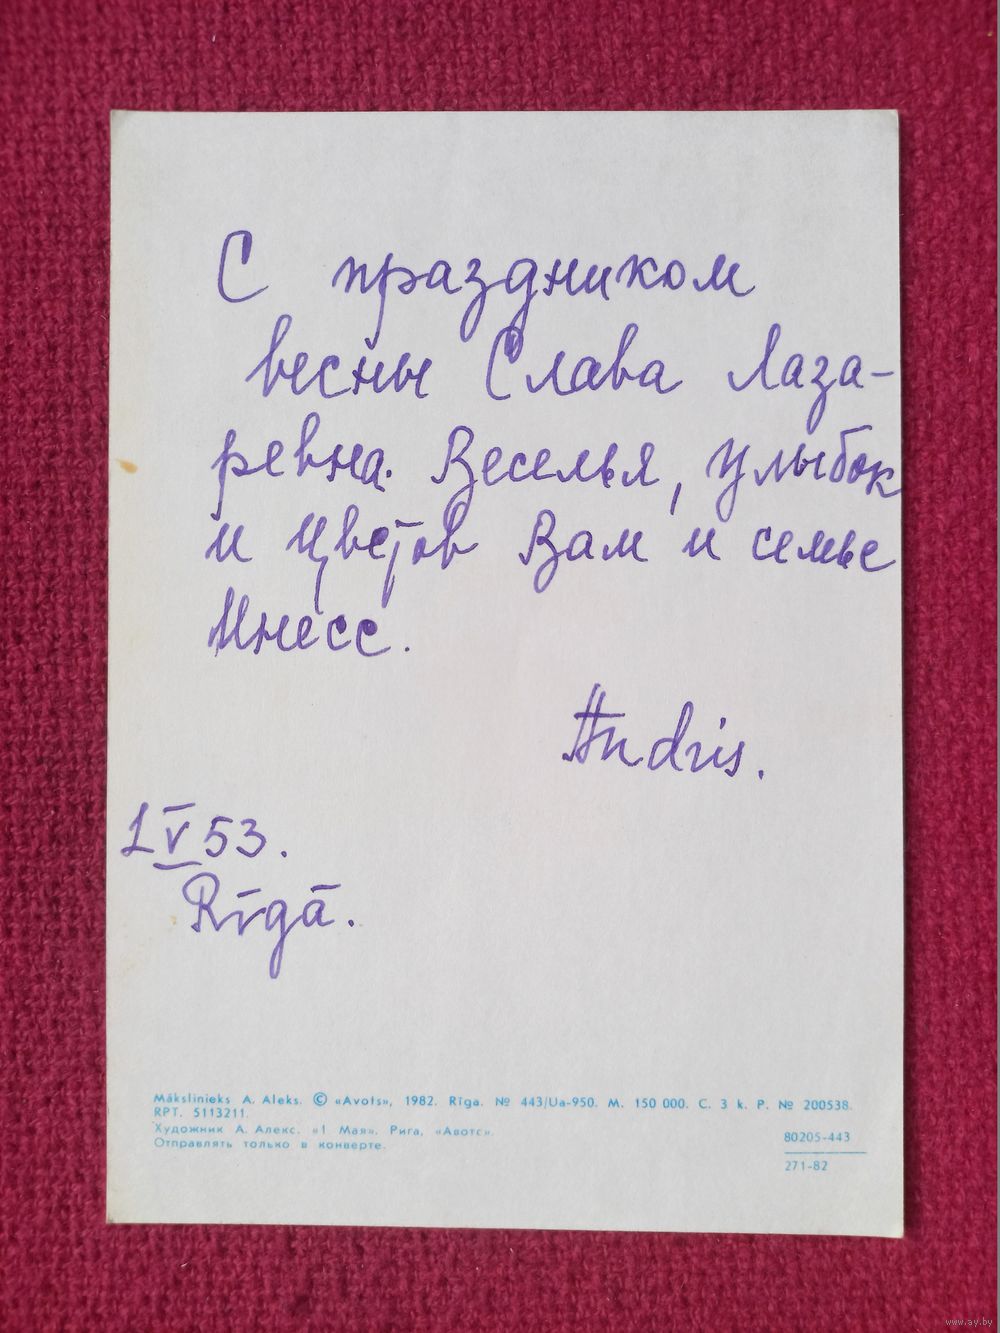 С праздником
весны Слава Лаза-
ревна. Веселья, улыбок
и цветов Вам и семье
Инесс.
Andris.
1 V 53.
Rīgā.
Mākslinieks A. Aleks. © «Avots», 1982. Rīga. № 443/Ua-950. M. 150 000. C. 3 k. P. № 200538.
RPT. 5113211.
Художник А. Алекс. «1 Мая». Рига, «Авотс».
Отправлять только в конверте.
80205-443
271-82
www.ay.by